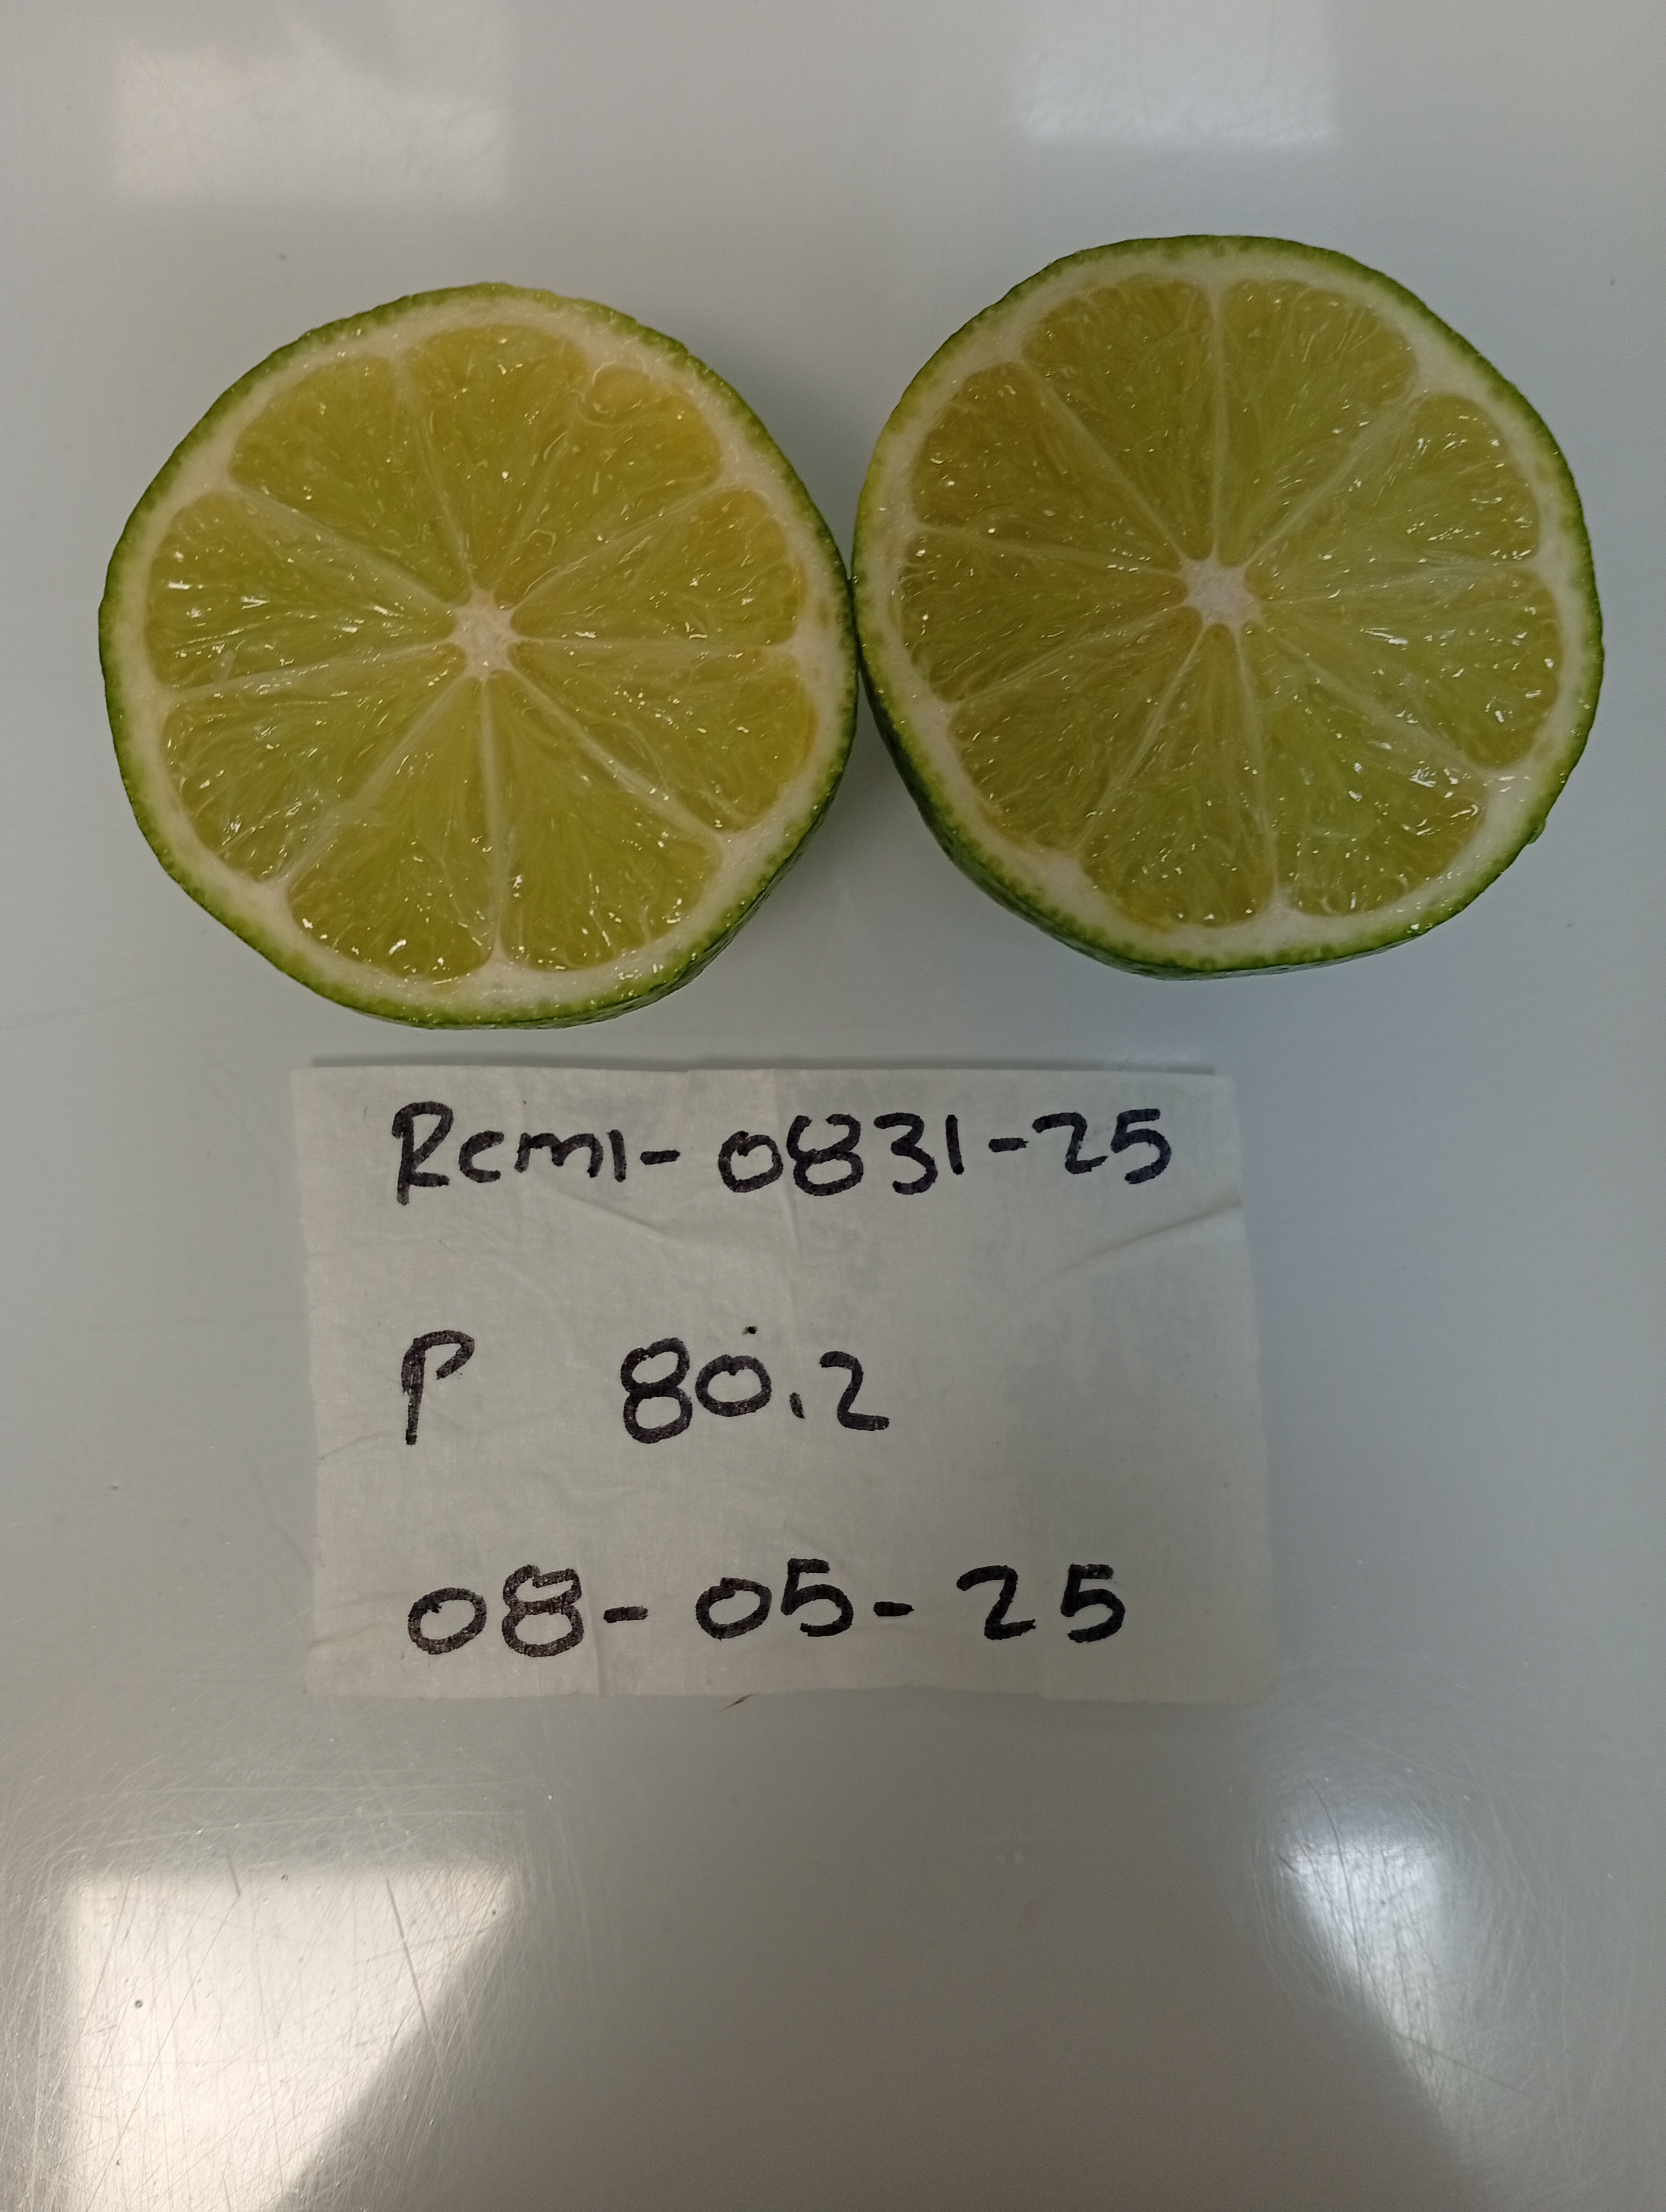 Rcm1-0831-25
P 80.2
08-05-25